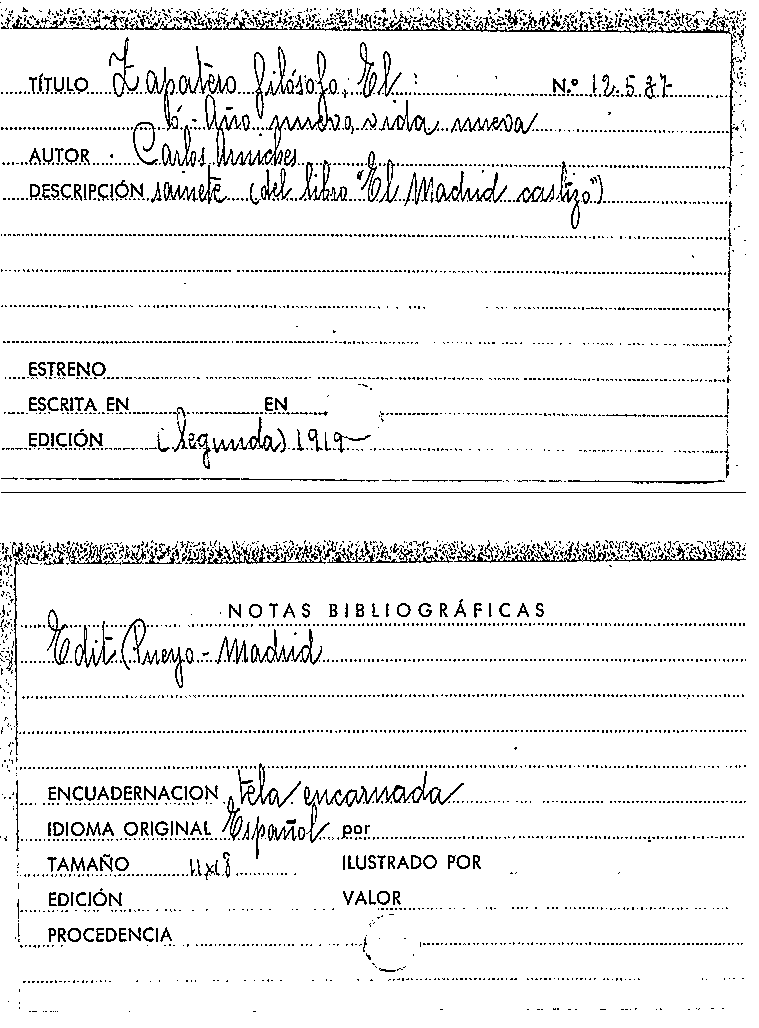 TÍTULO Zapatero filósofo, El N.º 12.587
ó - Año nuevo, vida nueva
AUTOR Carlos Arniches
DESCRIPCIÓN sainete (del libro "El Madrid castizo")
ESTRENO
ESCRITA EN EN
EDICIÓN (Segunda) 1919
NOTAS BIBLIOGRÁFICAS
Edit. Pueyo - Madrid
ENCUADERNACION tela encarnada
IDIOMA ORIGINAL Español por
TAMAÑO 11x18 ILUSTRADO POR
EDICIÓN VALOR
PROCEDENCIA